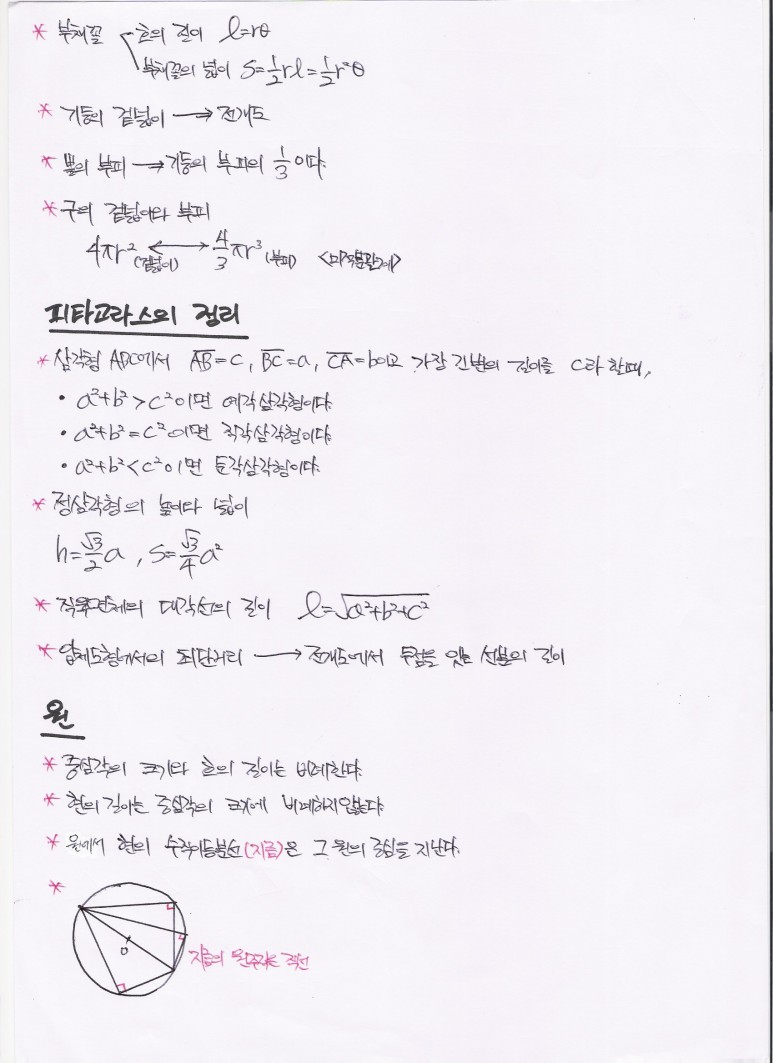 * 부채꼴 호의 길이 l=rθ
부채꼴의 넓이 S=½rl=½r²θ
* 기둥의 겉넓이 → 전개도
* 뿔의 부피 → 기둥의 부피의 1/3 이다.
* 구의 겉넓이와 부피
4πr² (겉넓이) ↔ 4/3 πr³ (부피) <미적분관계>
피타고라스의 정리
* 삼각형 ABC에서 A̅B̅=c, B̅C̅=a, C̅A̅=b이고 가장 긴변의 길이를 c라 할때,
• a²+b²>c²이면 예각삼각형이다.
• a²+b²=c²이면 직각삼각형이다.
• a²+b²<c²이면 둔각삼각형이다.
* 정삼각형의 높이와 넓이
h=√3/2 a, S=√3/4 a²
* 직육면체의 대각선의 길이 l=√(a²+b²+c²)
* 입체도형에서의 최단거리 → 전개도에서 두점을 잇는 선분의 길이
원
* 중심각의 크기와 호의 길이는 비례한다.
* 현의 길이는 중심각의 크기에 비례하지않는다.
* 원에서 현의 수직이등분선(지름)은 그 원의 중심을 지난다.
*
O
지름의 원주각은 직선